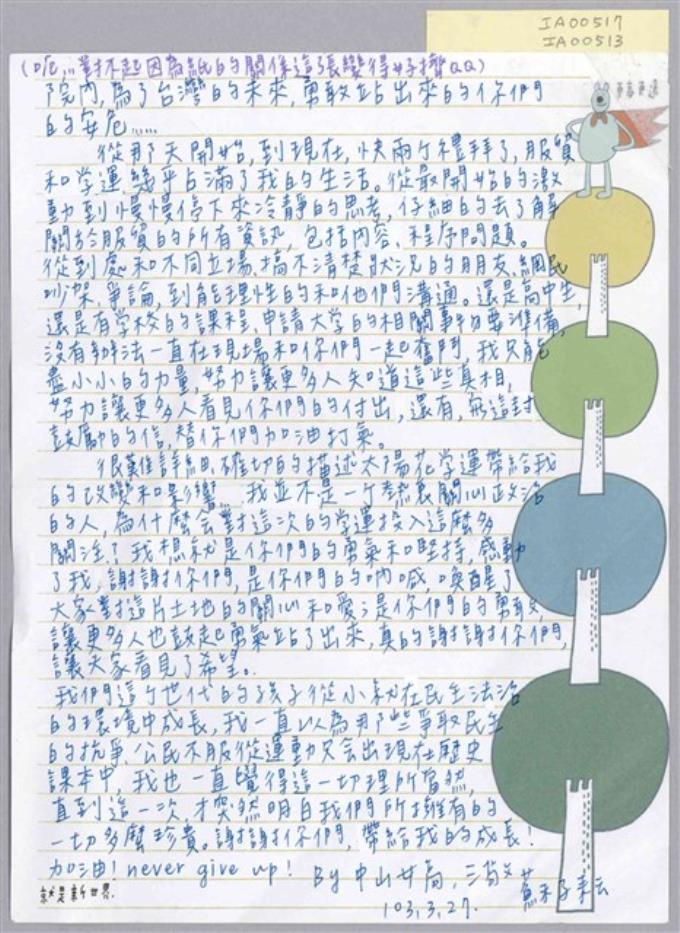 IA00517
IA00513
(呃...對不起因為紙的關係這張變得好擠QQ)
院內,為了台灣的未來,勇敢站出來的你們
的安危......
從那天開始,到現在,快兩个禮拜了,服貿
和学運幾乎占滿了我的生活。從最開始的激
動到慢慢停下來冷靜的思考,仔細的去了解
關於服貿的所有資訊,包括內容、程序問題。
從到處和不同立場、搞不清楚狀況的朋友、網民
吵架、爭論,到能理性的和他們溝通。還是高中生,
還是有学校的課程,申請大学的相關事物要準備,
沒有辦法一直在現場和你們一起奮鬥,我只能
盡小小的力量,努力讓更多人知道這些真相,
努力讓更多人看見你們的付出,還有,
鼓勵的信,替你們加油打氣。
很難詳細、確切的描述太陽花学運帶給我
的改變和影響... 我並不是一个熱衷關心政治
的人,為什麼会對這次的学運投入這麼多
關注?我想就是你們的勇氣和堅持,感動
了我,謝謝你們,是你們的吶喊,喚醒了
大家對這片土地的關心和愛;是你們的勇敢,
讓更多人也鼓起勇氣站了出來,真的謝謝你們,
讓大家看見了希望。
我們這个世代的孩子從小就在民主法治
的環境中成長,我一直以為那些爭取民主
的抗爭、公民不服從運動只会出現在歷史
課本中,我也一直覺得這一切理所當然,
直到這一次,才突然明白我們所擁有的
一切多麼珍貴。謝謝你們,帶給我的成長!
加油! never give up! By 中山女高,三敬
103.3.27.
就是新世界.